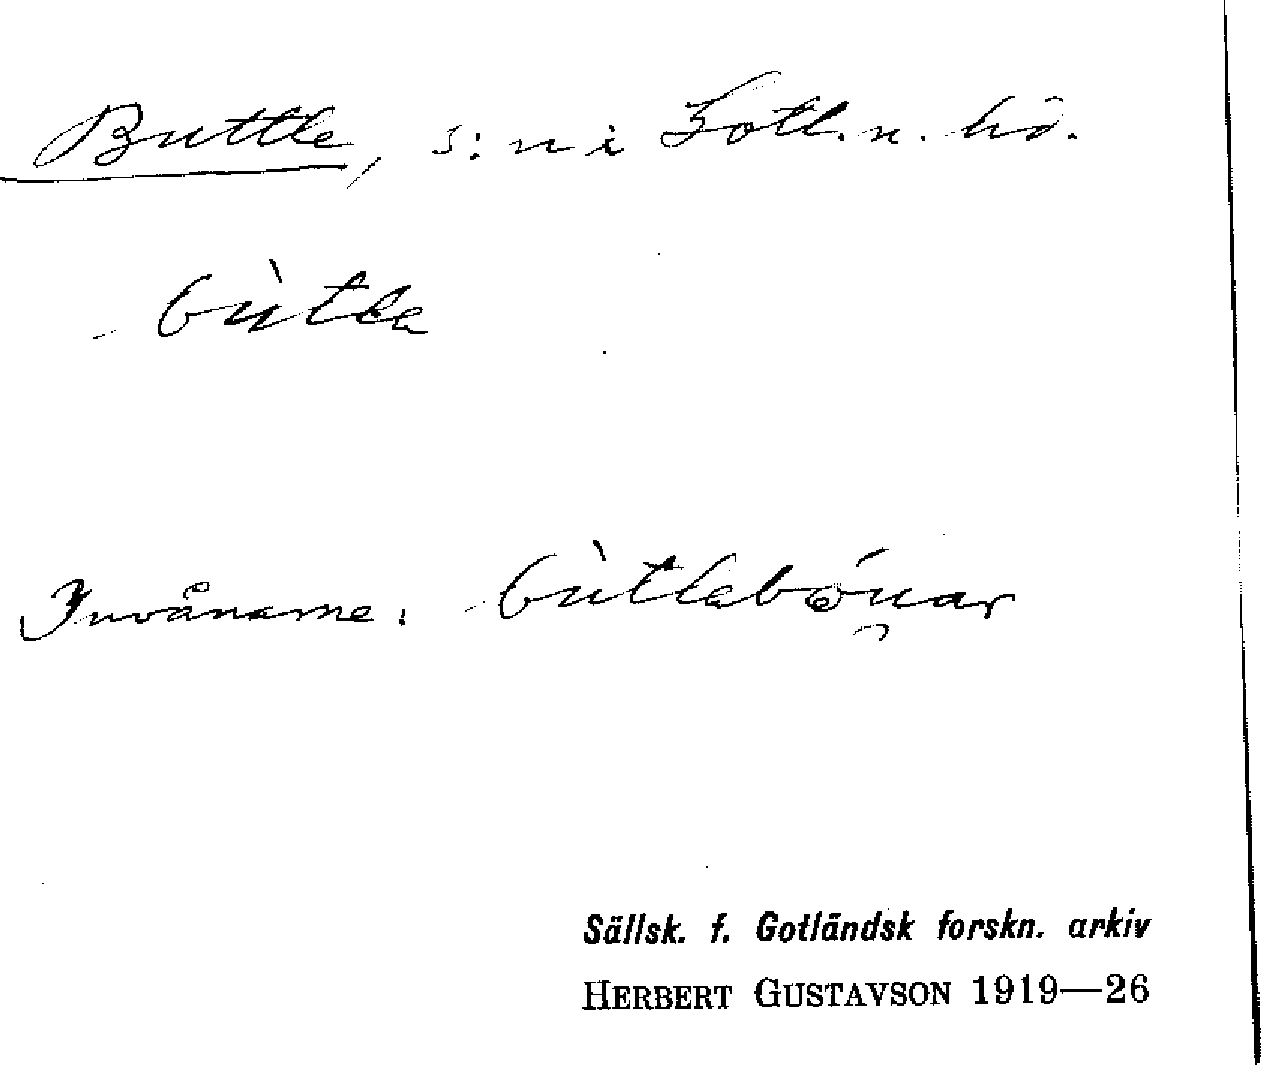 Buttle, s:n i Gotl. n. hd.
bùtla
Invånarne: bùtlabönar
Sällsk. f. Gotländsk forskn. arkiv
HERBERT GUSTAVSON 1919—26